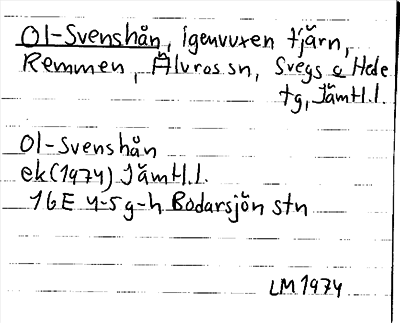 Ol-Svenshån, igenvuxen tjärn,
Remmen, Älvros sn, Svegs o Hede
tg, Jämtl.l.
Ol-Svenshån
ek (1974) Jämtl.l.
16E 4-5 g-h Bodarsjön stn
LM 1974